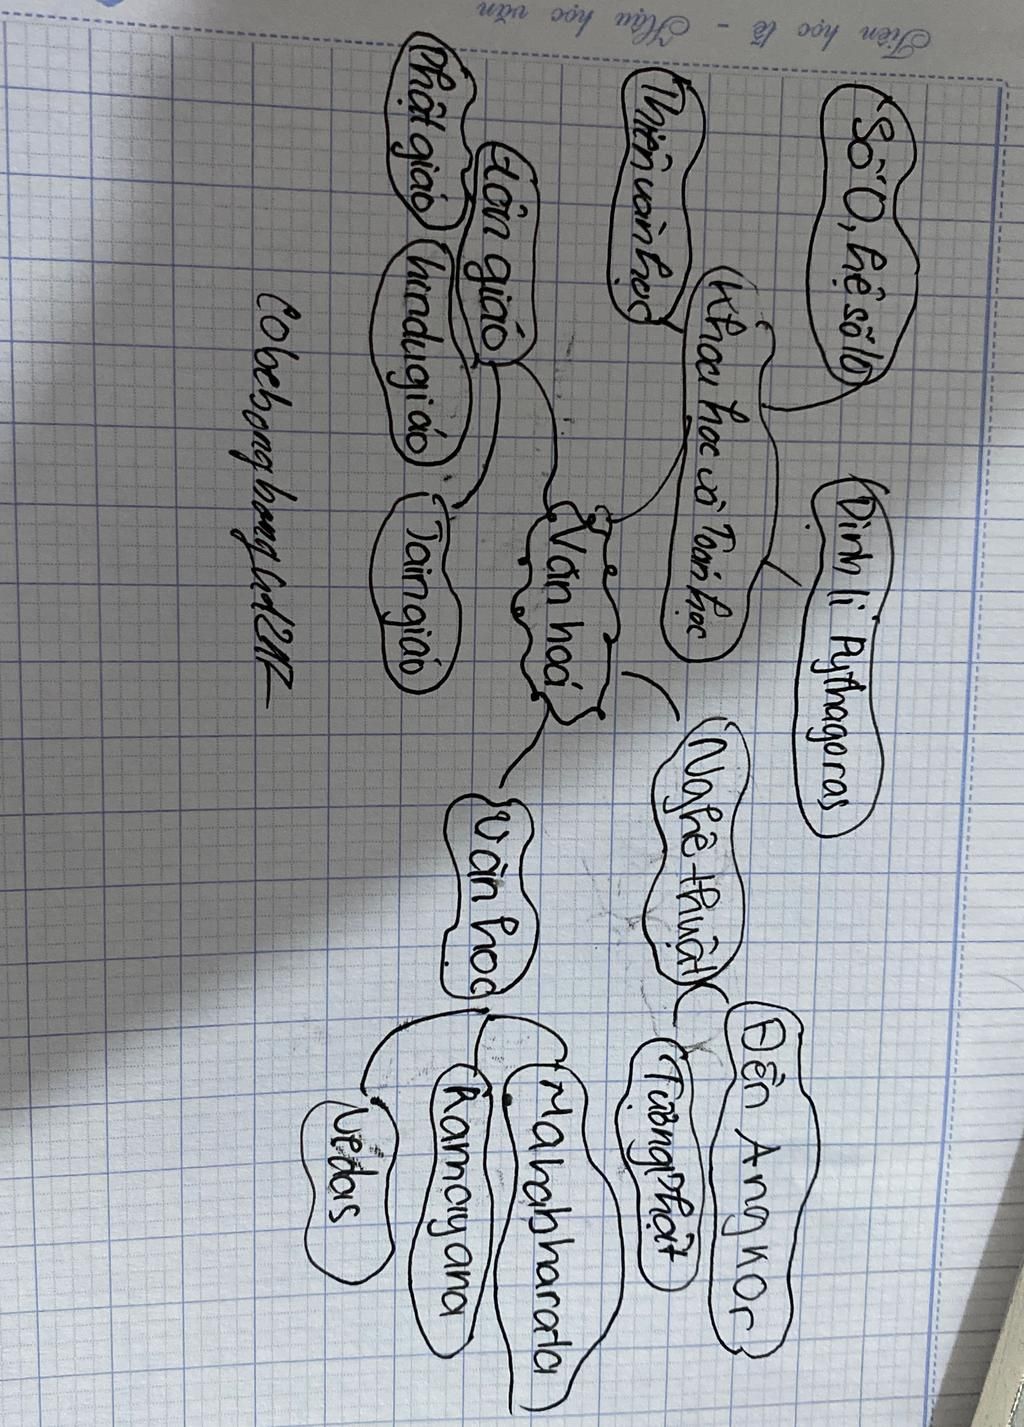 Tiên học lễ - Hậu học văn
Số 0, hệ số 10
Định lí Pythagoras
Thiên văn học
Khoa học và Toán học
Nghệ thuật
Đền Angkor
Tượng Phật
Tôn giáo
Văn hoá
Phật giáo
hindu giáo
Jain giáo
Văn học
Mahabharata
Ramayana
Vedas